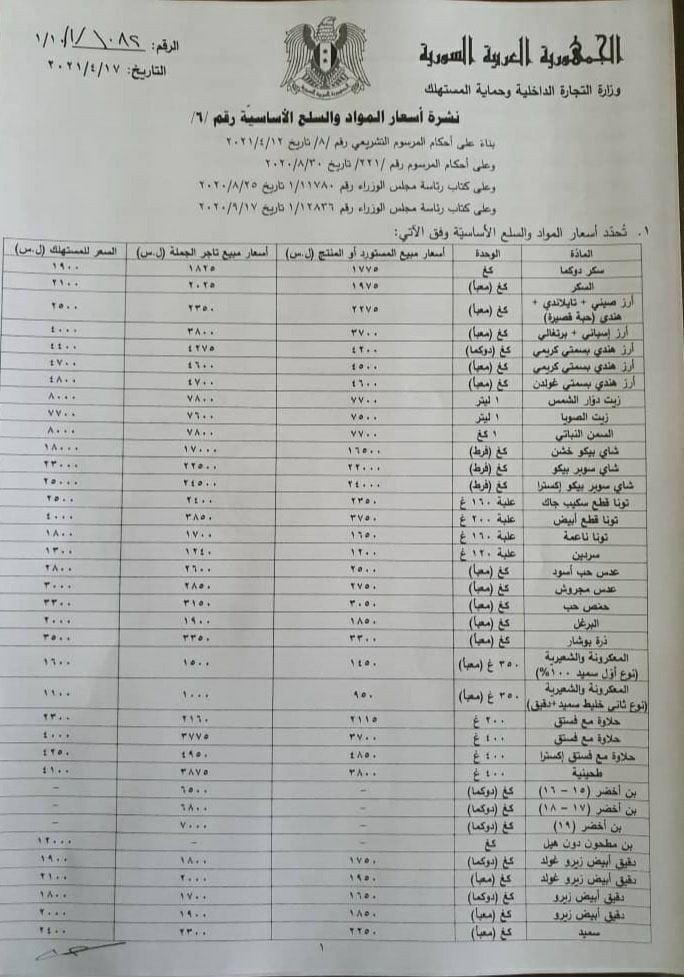 الجمهورية العربية السورية
وزارة التجارة الداخلية وحماية المستهلك
الرقم: ١/١٠/١/١٠٨٢
التاريخ: ٢٠٢١/٤/١٧
نشرة أسعار المواد والسلع الأساسيّة رقم /٦/
بناءً على أحكام المرسوم التشريعي رقم /٨/ تاريخ ٢٠٢١/٤/١٢
وعلى أحكام المرسوم رقم /٢٢١/ تاريخ ٢٠٢٠/٨/٣٠
وعلى كتاب رئاسة مجلس الوزراء رقم ١/١١٧٨٠ تاريخ ٢٠٢٠/٨/٢٥
وعلى كتاب رئاسة مجلس الوزراء رقم ١/١٢٨٣٦ تاريخ ٢٠٢٠/٩/١٧
١. تُحدّد أسعار المواد والسلع الأساسيّة وفق الآتي:
المادّة الوحدة أسعار مبيع المستورد أو المنتج (ل.س) أسعار مبيع تاجر الجملة (ل.س) السعر للمستهلك (ل.س)
سكر دوكما كغ ١٧٧٥ ١٨٢٥ ١٩٠٠
السكر كغ (معبأ) ١٩٧٥ ٢٠٢٥ ٢١٠٠
أرز صيني + تايلاندي + هندي (حبة قصيرة) كغ (معبأ) ٢٢٧٥ ٢٣٥٠ ٢٥٠٠
أرز إسباني + برتغالي كغ (معبأ) ٣٧٠٠ ٣٨٠٠ ٤٠٠٠
أرز هندي بسمتي كريمي كغ (دوكما) ٤٢٠٠ ٤٢٧٥ ٤٤٠٠
أرز هندي بسمتي كريمي كغ (معبأ) ٤٥٠٠ ٤٦٠٠ ٤٧٠٠
أرز هندي بسمتي غولدن كغ (معبأ) ٤٦٠٠ ٤٧٠٠ ٤٨٠٠
زيت دوّار الشمس ١ ليتر ٧٧٠٠ ٧٨٠٠ ٨٠٠٠
زيت الصويا ١ ليتر ٧٥٠٠ ٧٦٠٠ ٧٧٠٠
السمن النباتي ١ كغ ٧٧٠٠ ٧٨٠٠ ٨٠٠٠
شاي بيكو خشن كغ (فرط) ١٦٥٠٠ ١٧٠٠٠ ١٨٠٠٠
شاي سوبر بيكو كغ (فرط) ٢٢٠٠٠ ٢٢٥٠٠ ٢٣٠٠٠
شاي سوبر بيكو إكسترا كغ (فرط) ٢٤٠٠٠ ٢٤٥٠٠ ٢٥٠٠٠
تونا قطع سكيب جاك علبة ١٦٠ غ ٢٣٥٠ ٢٤٠٠ ٢٥٠٠
تونا قطع أبيض علبة ٢٠٠ غ ٣٧٥٠ ٣٨٥٠ ٤٠٠٠
تونا ناعمة علبة ١٦٠ غ ١٦٥٠ ١٧٠٠ ١٨٠٠
سردين علبة ١٢٠ غ ١٢٠٠ ١٢٤٠ ١٣٠٠
عدس حب أسود كغ (معبأ) ٢٥٠٠ ٢٦٠٠ ٢٨٠٠
عدس مجروش كغ (معبأ) ٢٧٥٠ ٢٨٥٠ ٣٠٠٠
حمّص حب كغ (معبأ) ٣٠٥٠ ٣١٥٠ ٣٣٠٠
البرغل كغ (معبأ) ١٨٥٠ ١٩٠٠ ٢٠٠٠
ذرة بوشار كغ (معبأ) ٣٣٠٠ ٣٣٥٠ ٣٥٠٠
المعكرونة والشعيرية (نوع أوّل سميد ١٠٠%) ٣٥٠ غ (معبأ) ١٤٥٠ ١٥٠٠ ١٦٠٠
المعكرونة والشعيرية (نوع ثاني خليط سميد+دقيق) ٣٥٠ غ (معبأ) ٩٥٠ ١٠٠٠ ١١٠٠
حلاوة مع فستق ٢٠٠ غ ٢١١٥ ٢١٦٠ ٢٣٠٠
حلاوة مع فستق ٤٠٠ غ ٣٧٠٠ ٣٧٧٥ ٤٠٠٠
حلاوة مع فستق إكسترا ٤٠٠ غ ٤٨٥٠ ٤٩٥٠ ٤٢٥٠
طحينية ٤٠٠ غ ٣٨٠٠ ٣٨٧٥ ٤١٠٠
بن أخضر (١٥ – ١٦) كغ (دوكما) – ٦٥٠٠ –
بن أخضر (١٧ – ١٨) كغ (دوكما) – ٦٨٠٠ –
بن أخضر (١٩) كغ (دوكما) – ٧٠٠٠ –
بن مطحون دون هيل كغ – – ١٢٠٠٠
دقيق أبيض زيرو غولد كغ (دوكما) ١٧٥٠ ١٨٠٠ ١٩٠٠
دقيق أبيض زيرو غولد كغ (معبأ) ١٩٥٠ ٢٠٠٠ ٢١٠٠
دقيق أبيض زيرو كغ (دوكما) ١٦٥٠ ١٧٠٠ ١٨٠٠
دقيق أبيض زيرو كغ (معبأ) ١٨٥٠ ١٩٠٠ ٢٠٠٠
سميد كغ (معبأ) ٢٢٥٠ ٢٣٠٠ ٢٤٠٠
١